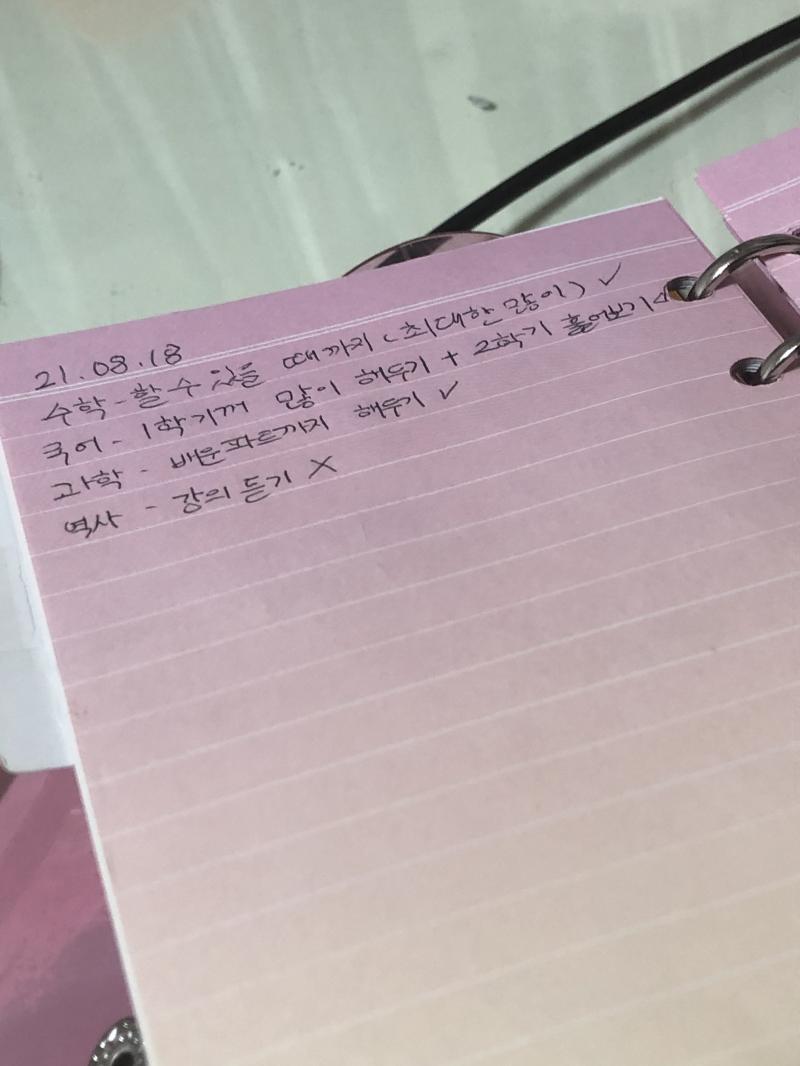 21.08.18
수학 - 할 수 있을 때까지 (최대한 많이) ✓
국어 - 1학기꺼 많이 해두기 + 2학기 훑어보기 △
과학 - 배운파트까지 해두기 ✓
역사 - 강의 듣기 X